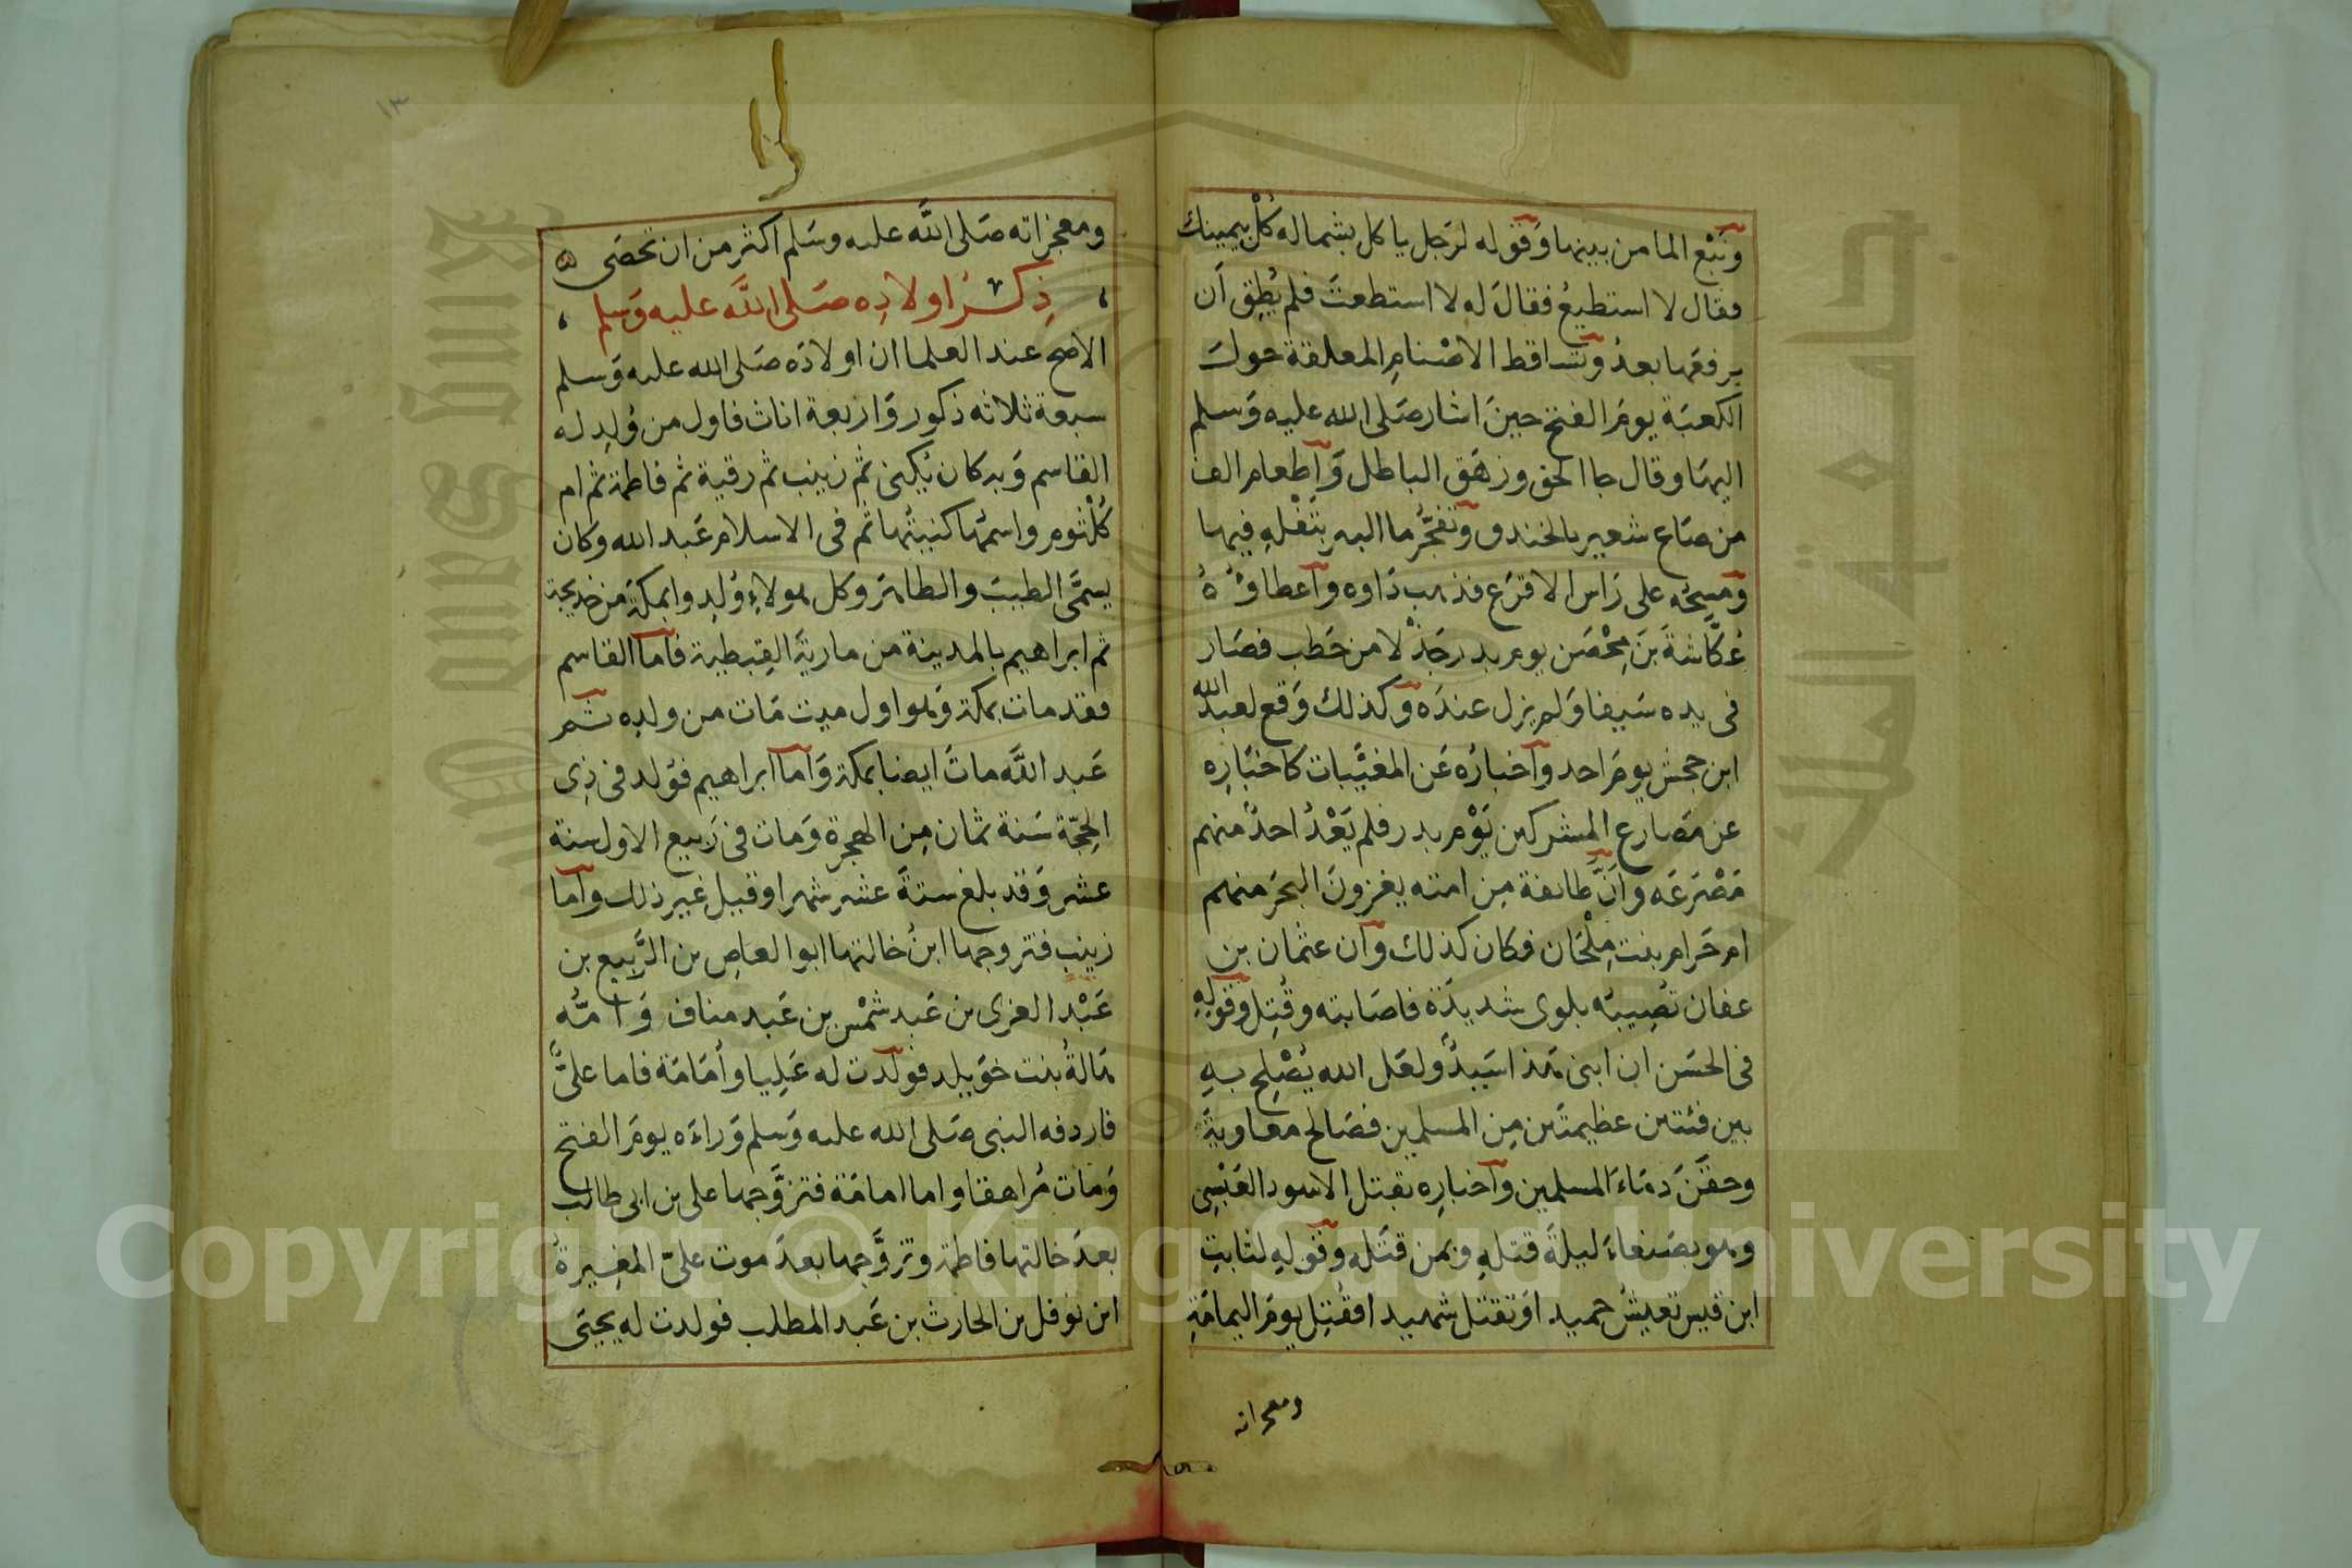 ونَبْع الما من بينها وقوله لرجل ياكل بشماله كُلْ بيمينك
فقال لا استطيعُ فقالَ له لا استطعتَ فلم يُطِق أن
يرفعَها بعدُ وتساقط الاصْنامِ المعلقة حولَ
الكعبَة يومَ الفتح حينَ اشار صَلى الله عليه وَسلم
اليهَا وقال جا الحق وزهَق الباطل وَاطعام الف
من صَاع شعير بالخندق وتَفَجُّر ما البير بتَفْلِهِ فيها
ومَسحِه على رَاس الاقرَع فذهب دَاوه واعطاوُهُ
عُكَّاشةَ بنَ مِحْصَن يوم بدر جَذْلا من حَطب فصَار
فى يده سَيفا وَلم يزل عندَه وَكذلك وَقع لعبد الله
ابن جحش يومَ احد وَاخبارُه عَن المغيَّبات كاخبَارِه
عن مَصارع المشركين يَوْم بدر فلم يَعْدُ احدٌ منهم
مَصْرعَه وانَّ طايفة مِن امته يغزونَ البحرَ منهم
ام حَرام بنت مِلْحَان فكان كذلك وَان عثمان بن
عفان تُصِيبُه بلوى شديدَة فاصَابته وقُتِل وقولِهِ
فى الحسَن ان ابنى هذا سَيدٌ ولعَل الله يُصْلِح بهِ
بين فئتين عظيمتَين مِن المسلمين فصَالح معاويةَ
وحقَنَ دمَاءَ المسلمين وَاخبارِه بقتلِ الاسود العَنْسِى
وهو بصَنعاءَ ليلةَ قتلهِ وبمن قتَله وقولهِ لثابتِ
ابن قيس تعيشُ حميدا وَتقتل شهيدا فقُتِل يومَ اليمامَةِ
ومعجزاته
١٣
ومعجزاته صَلى اللَّه عليه وسَلم اكثر من ان تحصَى
ذِكرُ اولادِه صَلى اللَّه عليه وَسلم
الاصح عند العلما ان اولادَه صَلى الله عليه وَسلم
سبعة ثلاثه ذكور وَاربعة اناث فاول من وُلِد له
القاسم وَبه كان يُكنى ثم زينب ثم رقية ثم فاطمة ثم ام
كُلْثوم واسمُها كنيتُها ثم فى الاسلام عَبد الله وكان
يسمَّى الطيبَ والطاهرَ وكل هولاءِ وُلِدوا بمكةَ من خديجة
ثم ابراهيم بالمدينة من ماريةَ القِبطية فاما القاسم
فقد مات بمكة وَهو اول ميت مَات من ولده ثم
عَبد اللَّه ماتَ ايضا بمكة وَاما ابراهيم فوُلد فى ذِى
الحِجّة سَنة ثمان مِن الهجرة وَمات فى رَبيع الاول سنة
عشر وَقد بلغ ستةَ عشر شهرا وقيل غير ذلك واما
زينب فتزوجها ابنُ خالتها ابو العاصِ بن الرَّبيع بن
عَبْد العزى بن عَبد شمْس بن عَبد مناف وَامُّه
هالةُ بنت خوَيلد فولدت له عَلِيا وأُمَامَة فاما علىٌّ
فاردفه النبى صَلى الله عليه وَسلم وَراءَه يومَ الفتح
وَمات مُراهقا واما امامَة فتزوَّجها على بن ابى طالب
بعدَ خالتها فاطمة وتزوَّجها بعدَ موت علىّ المغِيرةُ
ابن نوفل بن الحارث بن عَبد المطلب فولدت له يحيَى
Copyright © King Saud University